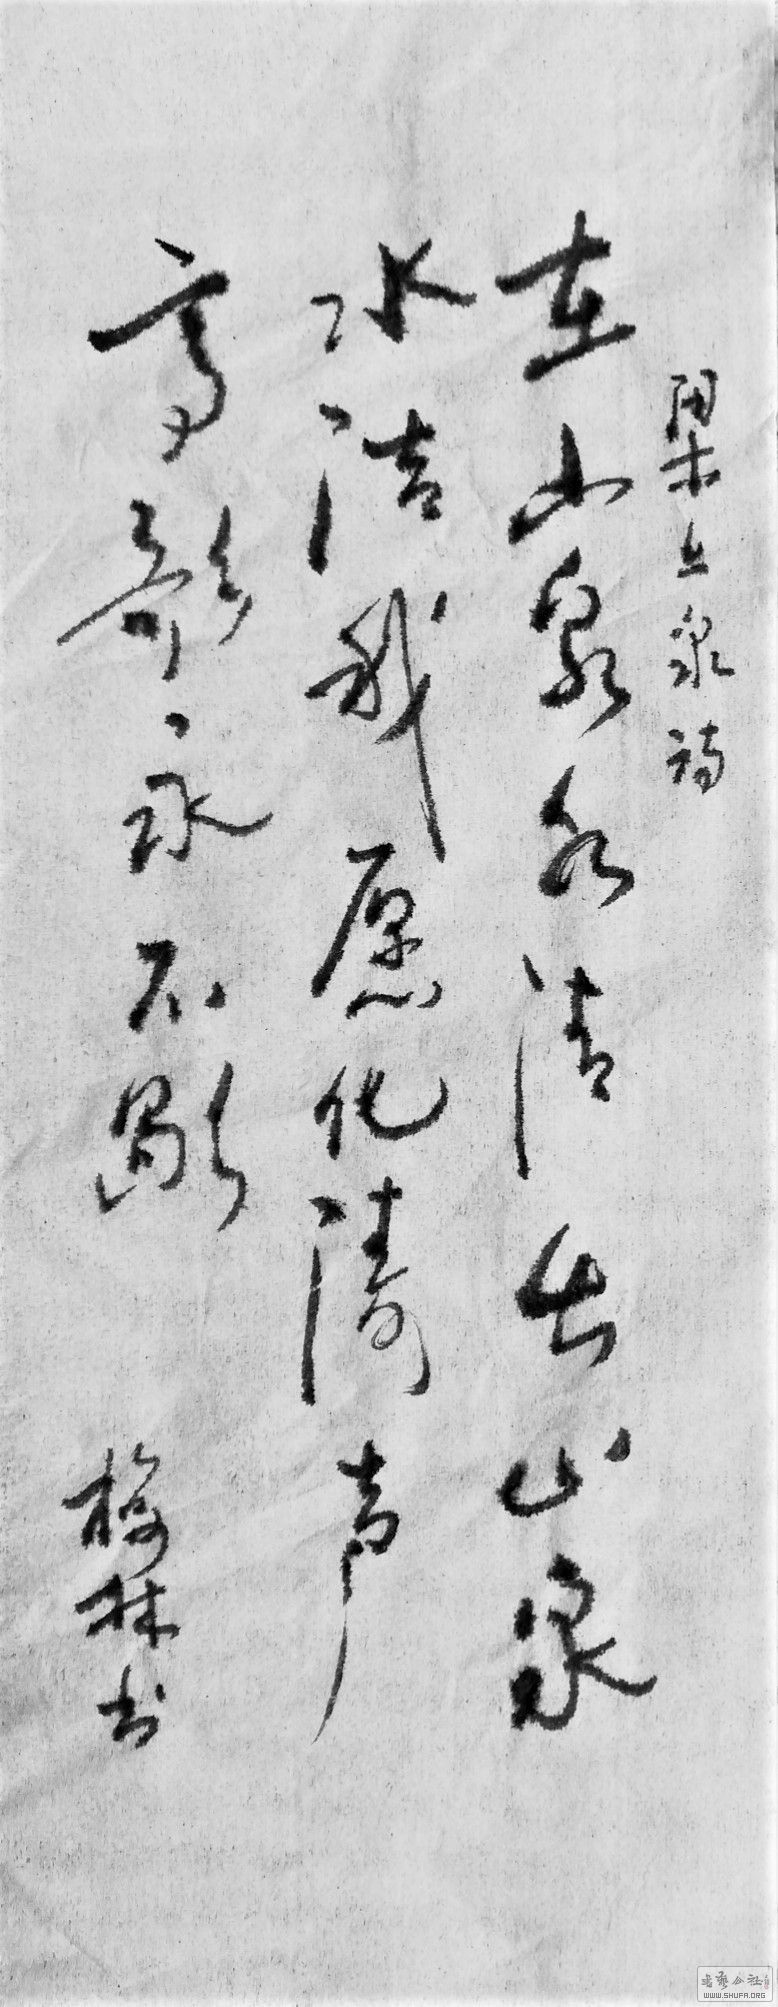 梁上泉诗
在山泉水清出山泉
水洁我愿化漪声
高歌永不歇
梅林书
书艺公社
WWW.SHUFA.ORG